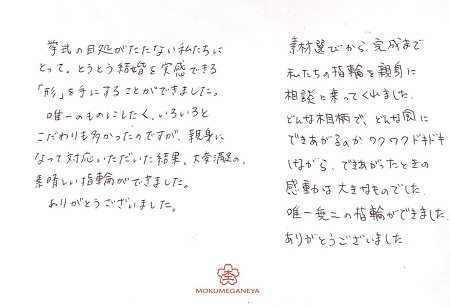 挙式の目処がたたない私たちに
とって、とうとう結婚を実感できる
「形」を手にすることができました。
唯一のものにしたく、いろいろと
こだわりも多かったのですが、親身に
なって対応いただいた結果、大変満足の、
素晴しい指輪ができました。
ありがとうございました。
素材選びから、完成まで
私たちの指輪を親身に
相談に乗ってくれました。
どんな相柄で、どんな図に
できあがるのかワクワクドキドキ
しながら、できあがったときの
感動は大きなものでした。
唯一無二の指輪ができました。
ありがとうございました。
MOKUMEGANEYA